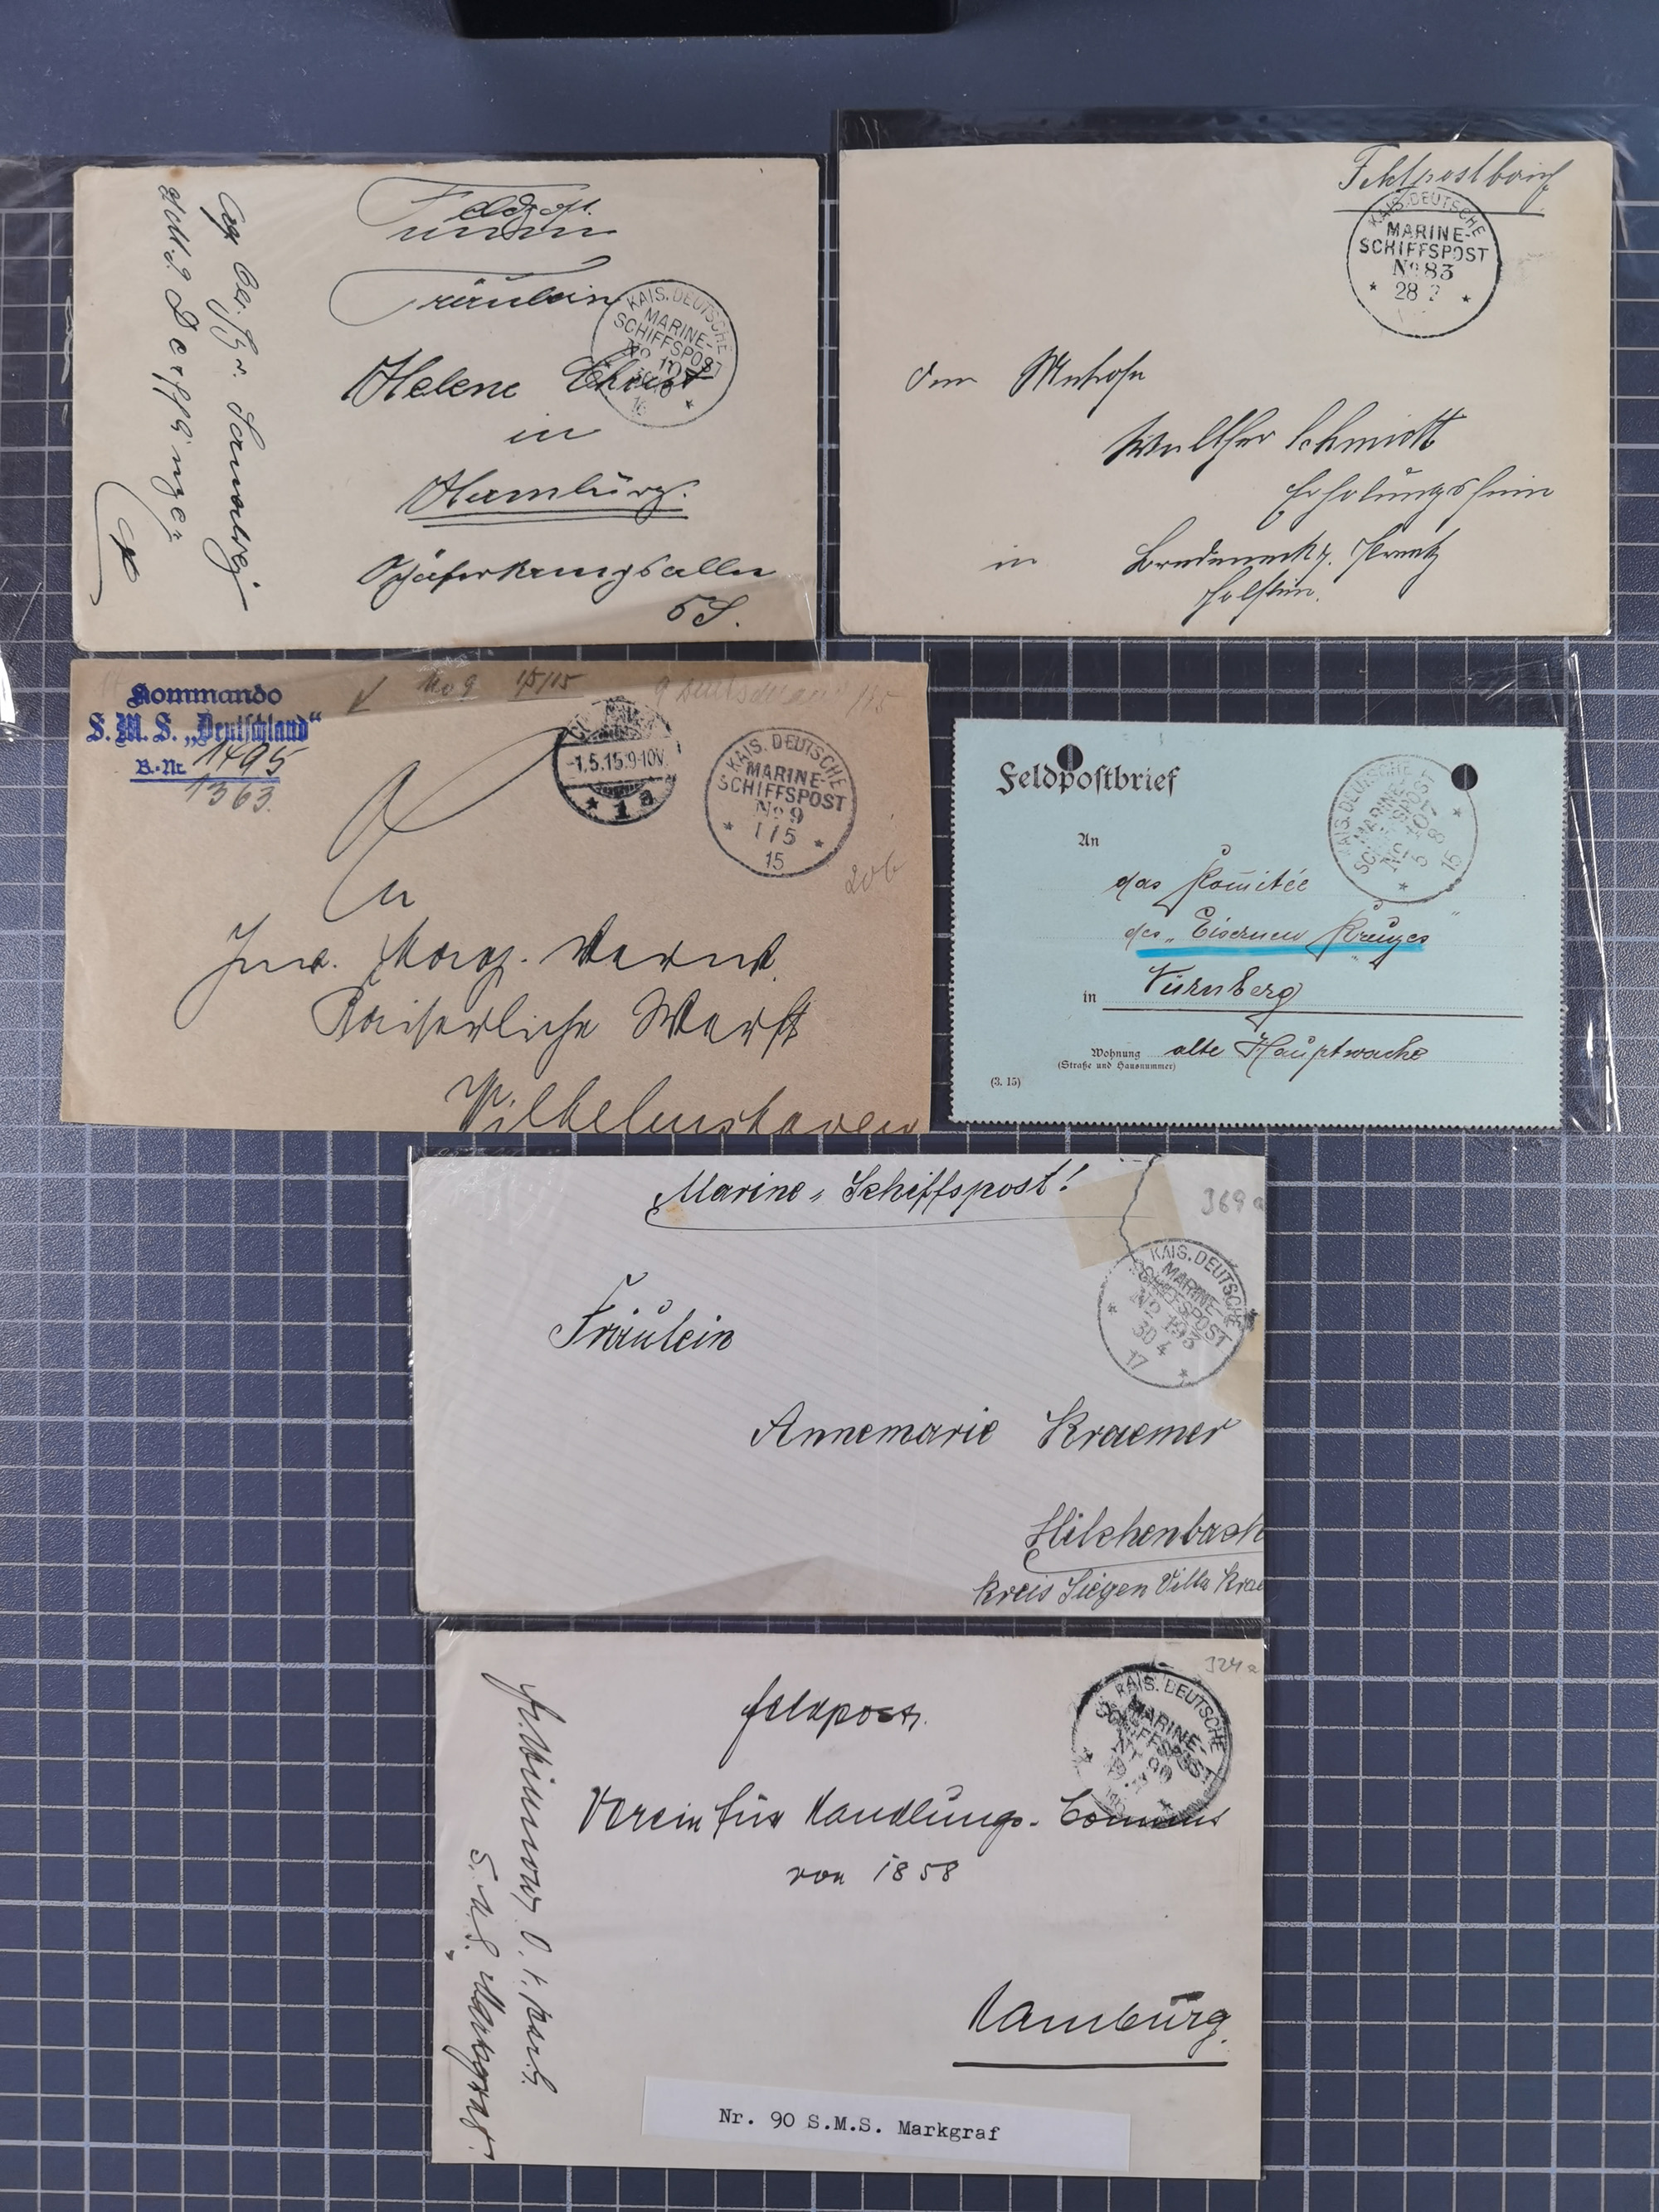 Feldpost.
Fräulein
Helene Christ
in
Hamburg.
Schäferkampsallee
KAIS. DEUTSCHE
MARINE-
SCHIFFSPOST
Feldpostbrief
KAIS. DEUTSCHE
MARINE-
SCHIFFSPOST
No 83
28
dem Matrosen
Walther Schmidt
Erholungsheim
in
Holstein.
Kommando
S. M. S. „Deutschland“
B.-Nr. 1495
1363.
No 9 1/5/15
-1.5.15.9-10V.
* 1 a
KAIS. DEUTSCHE
MARINE-
SCHIFFSPOST
No 9
1/5
15
20b
An
Kaiserliche Werft
Wilhelmshaven
Feldpostbrief
KAIS. DEUTSCHE
MARINE-
SCHIFFSPOST
No 107
5 8
15
An
das Komitée
des „Eisernen Kreuzes“
in Nürnberg
Wohnung alte Hauptwache
(Straße und Hausnummer)
(3. 15)
Marine-Schiffspost!
369 a
KAIS. DEUTSCHE
MARINE-
SCHIFFSPOST
No 193
30 4
17
Fräulein
Annemarie Kraemer
Hilchenbach
Kreis Siegen Villa Krae
324 a
Feldpost.
KAIS. DEUTSCHE
MARINE-
SCHIFFSPOST
90
Verein für Handlungs-Commis
von 1858
Hamburg.
S.M.S. „Markgraf“.
Nr. 90 S.M.S. Markgraf